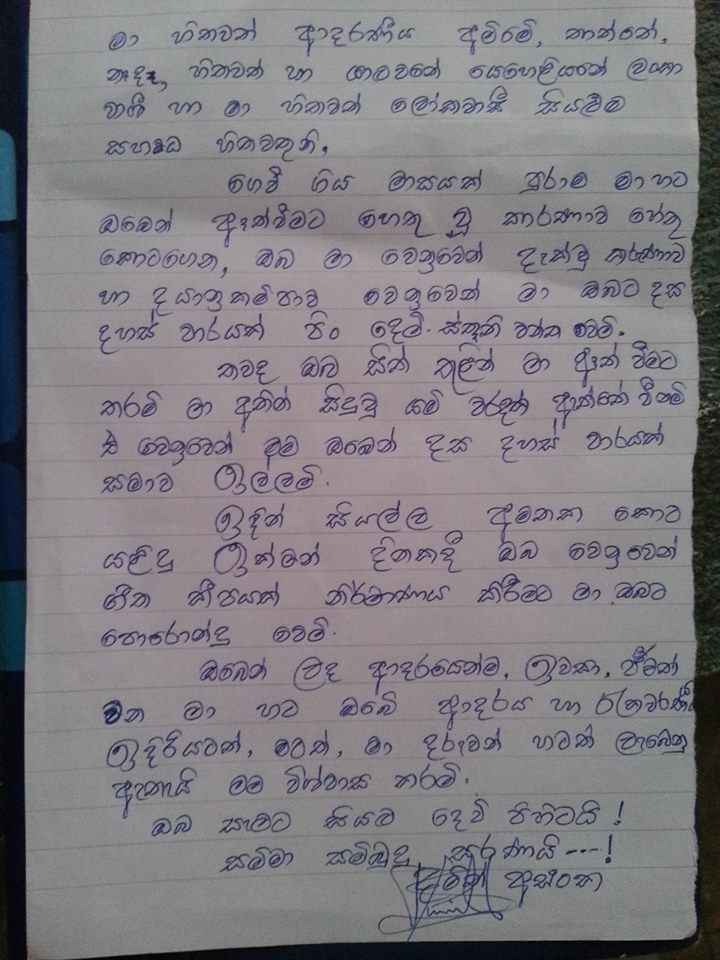 මා හිතවත් ආදරණීය අම්මේ, තාත්තේ,
නෑදෑ, හිතවත් හා යාළුවනේ යෙහෙළියනේ ලංකා
වාසී හා මා හිතවත් ලෝකවාසී සියළුම
සහෘද හිතවතුනි,
ගෙවී ගිය මාසයක් පුරාම මා හට
ඔබෙන් ඈත්වීමට හේතු වූ කාරණාව හේතු
කොටගෙන, ඔබ මා වෙනුවෙන් දැක්වූ කරුණාව
හා දයානුකම්පාව වෙනුවෙන් මා ඔබට දස
දහස් වාරයක් පිං දෙමි. ස්තූති වන්ත වෙමි.
තවද ඔබ සිත් තුළින් මා ඈත් වීමට
තරම් මා අතින් සිදුවූ යම් වරදක් ඇත්තේ වීනම්
ඒ වෙනුවෙන් මම ඔබෙන් දස දහස් වාරයක්
සමාව ඉල්ලමි.
ඉදින් සියල්ල අමතක කොට
යළිදු ඉක්මන් දිනකදී ඔබ වෙනුවෙන්
ගීත කීපයක් නිර්මාණය කිරීමට මා ඔබට
පොරොන්දු වෙමි.
ඔබෙන් ලද ආදරයෙන්ම, ඉවසා, ජීමත්
වන මා හට ඔබේ ආදරය හා රැකවරණය
ඉදිරියටත්, මටත්, මා දරුවන් හටත් ලැබෙනු
ඇතැයි මම විශ්වාස කරමි.
ඔබ සැමට සියළු දෙවි පිහිටයි!
සම්මා සම්බුදු සරණයි ---!
දමිත් අසංක